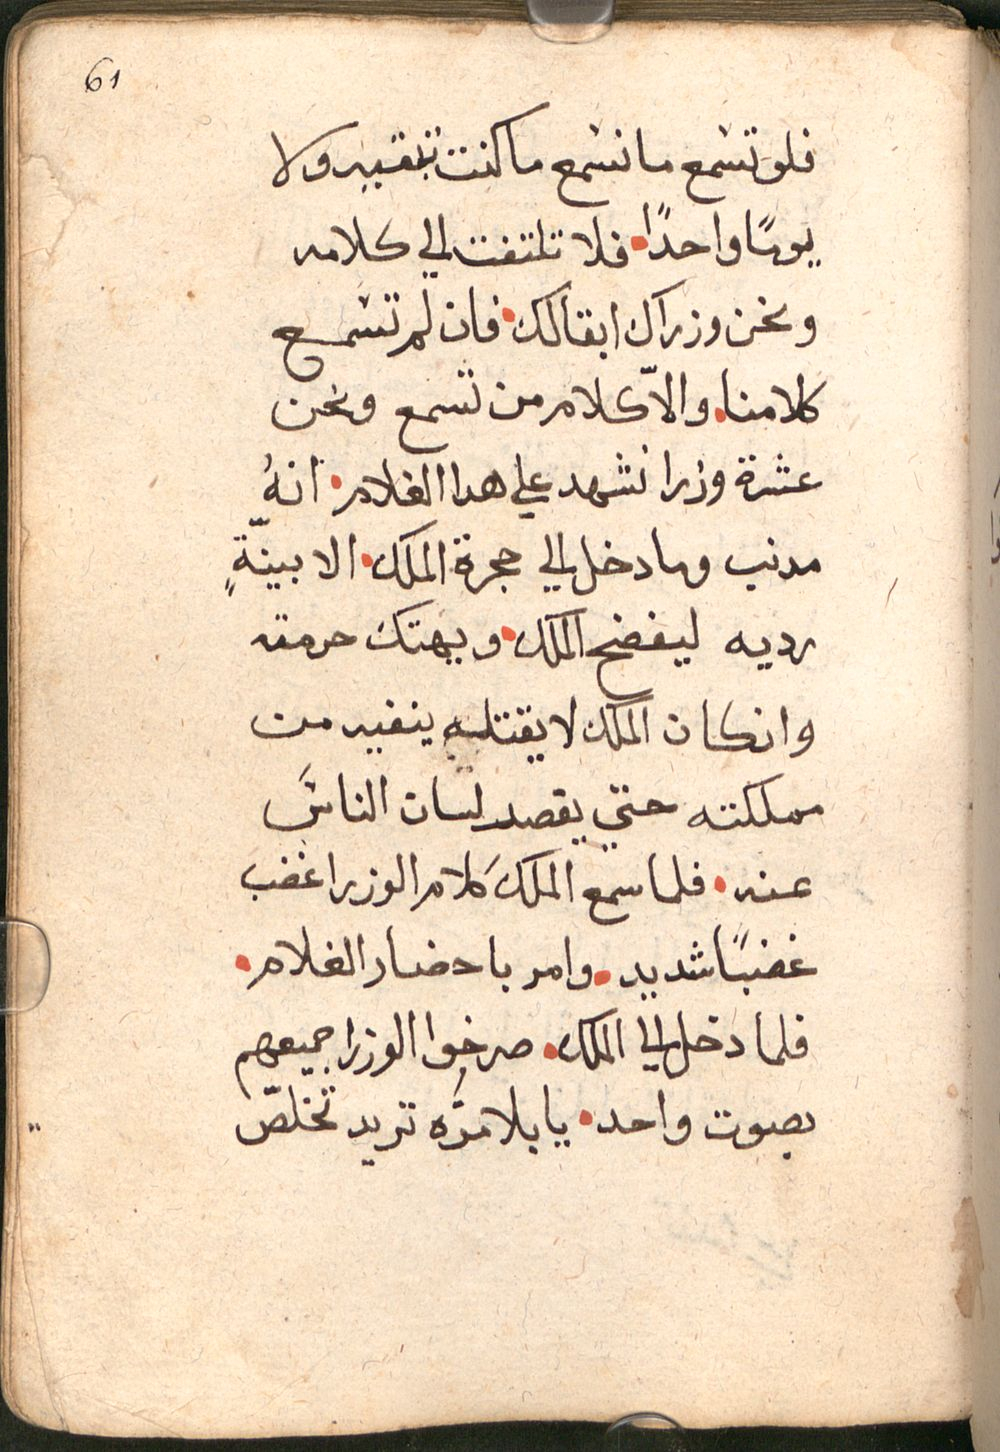 61
فلو تسمع ما نسمع ما كنت تبقيه ولا
يومًا واحدًا. فلا تلتفت الي كلامه
ونحن وزراك ابقالك. فان لم تسمع
كلامنا. والاّ كلام من تسمع ونحن
عشرة وزرا نشهد علي هدا الغلام. انهُ
مدنب وما دخل الي حجرة الملك. الا بنيّةٍ
رديه ليفضح الملك. ويهتك حرمته
وانكان الملك لا يقتله ينفيه من
مملكته حتي يقصد لسان الناس
عنه. فلما سمع الملك كلام الوزرا غضب
غضبًا شديد. وامر باحضار الغلام.
فلما دخل الي الملك. صرخوا الوزرا جميعهم
بصوت واحد. يا بلا مرّه تريد تخلصّ